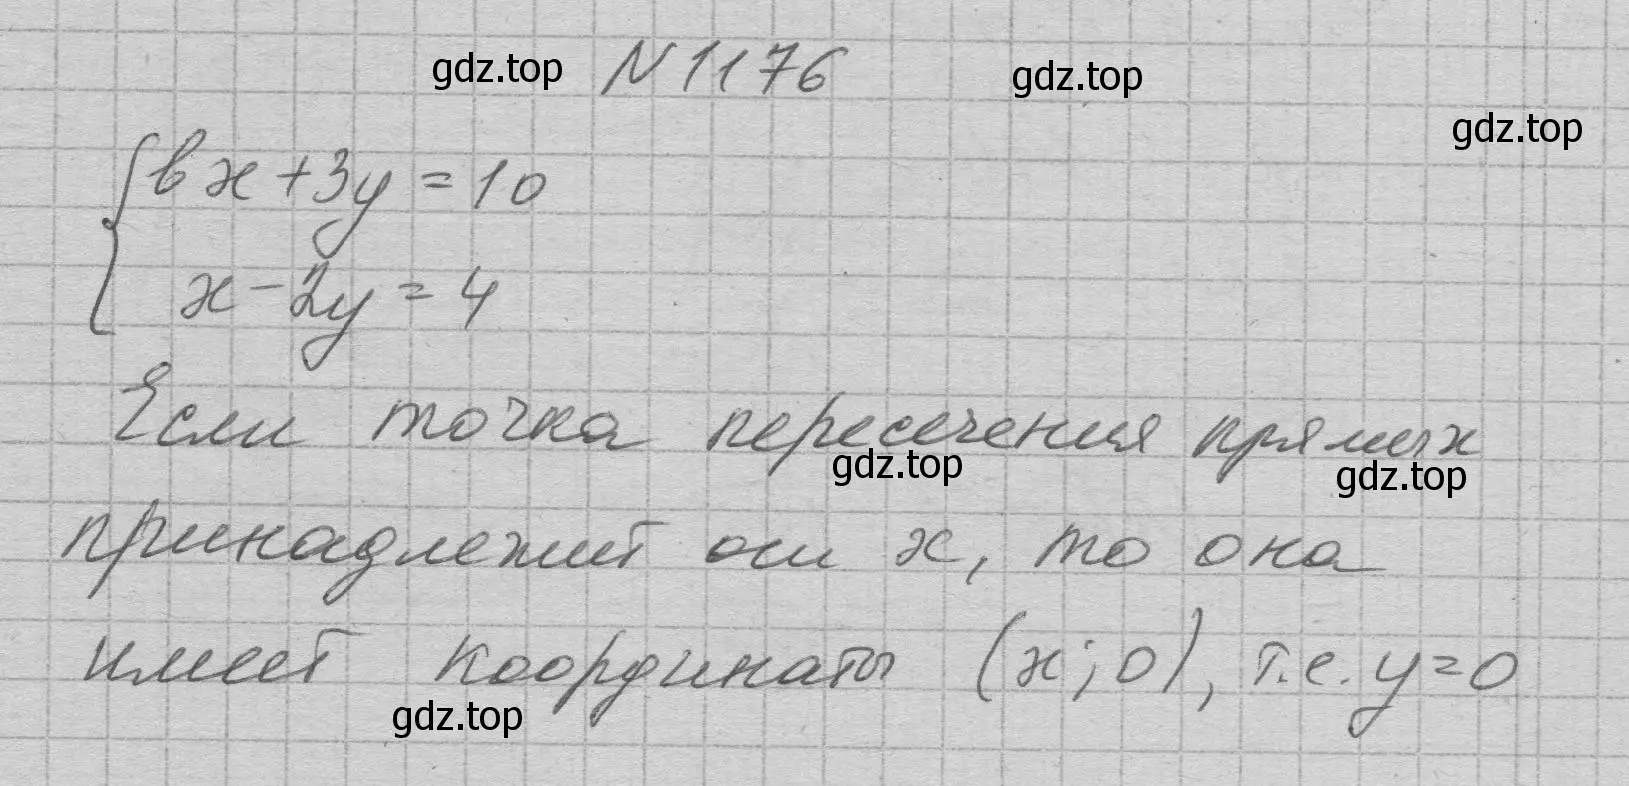 gdz.top N 1176 gdz.top
gdz.top
вx + 3y = 10
x - 2y = 4
Если точка пересечения прямых
gdz.top gdz.top
принадлежит оси x, то она
имеет координаты (x; 0), т.е. y = 0
gdz.top